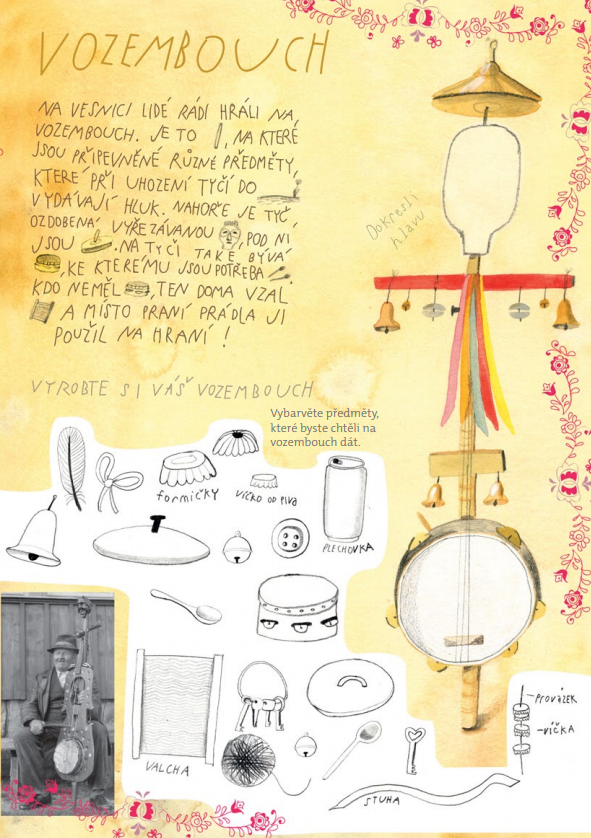 VOZEMBOUCH
NA VESNICI LIDÉ RÁDI HRÁLI NA
VOZEMBOUCH. JE TO , NA KTERÉ
JSOU PŘIPEVNĚNÉ RŮZNÉ PŘEDMĚTY,
KTERÉ PŘI UHOZENÍ TYČÍ DO
VYDÁVAJÍ HLUK. NAHOŘE JE TYČ
OZDOBENÁ VYŘEZÁVANOU , POD NÍ
JSOU . NA TYČI TAKÉ BÝVÁ
, KE KTERÉMU JSOU POTŘEBA .
KDO NEMĚL , TEN DOMA VZAL
A MÍSTO PRANÍ PRÁDLA JI
POUŽIL NA HRANÍ !
Dokresli
hlavu
VYROBTE SI VÁŠ VOZEMBOUCH
Vybarvěte předměty,
které byste chtěli na
vozembouch dát.
formičky
VÍČKO OD PIVA
PLECHOVKA
VALCHA
STUHA
PROVÁZEK
VÍČKA